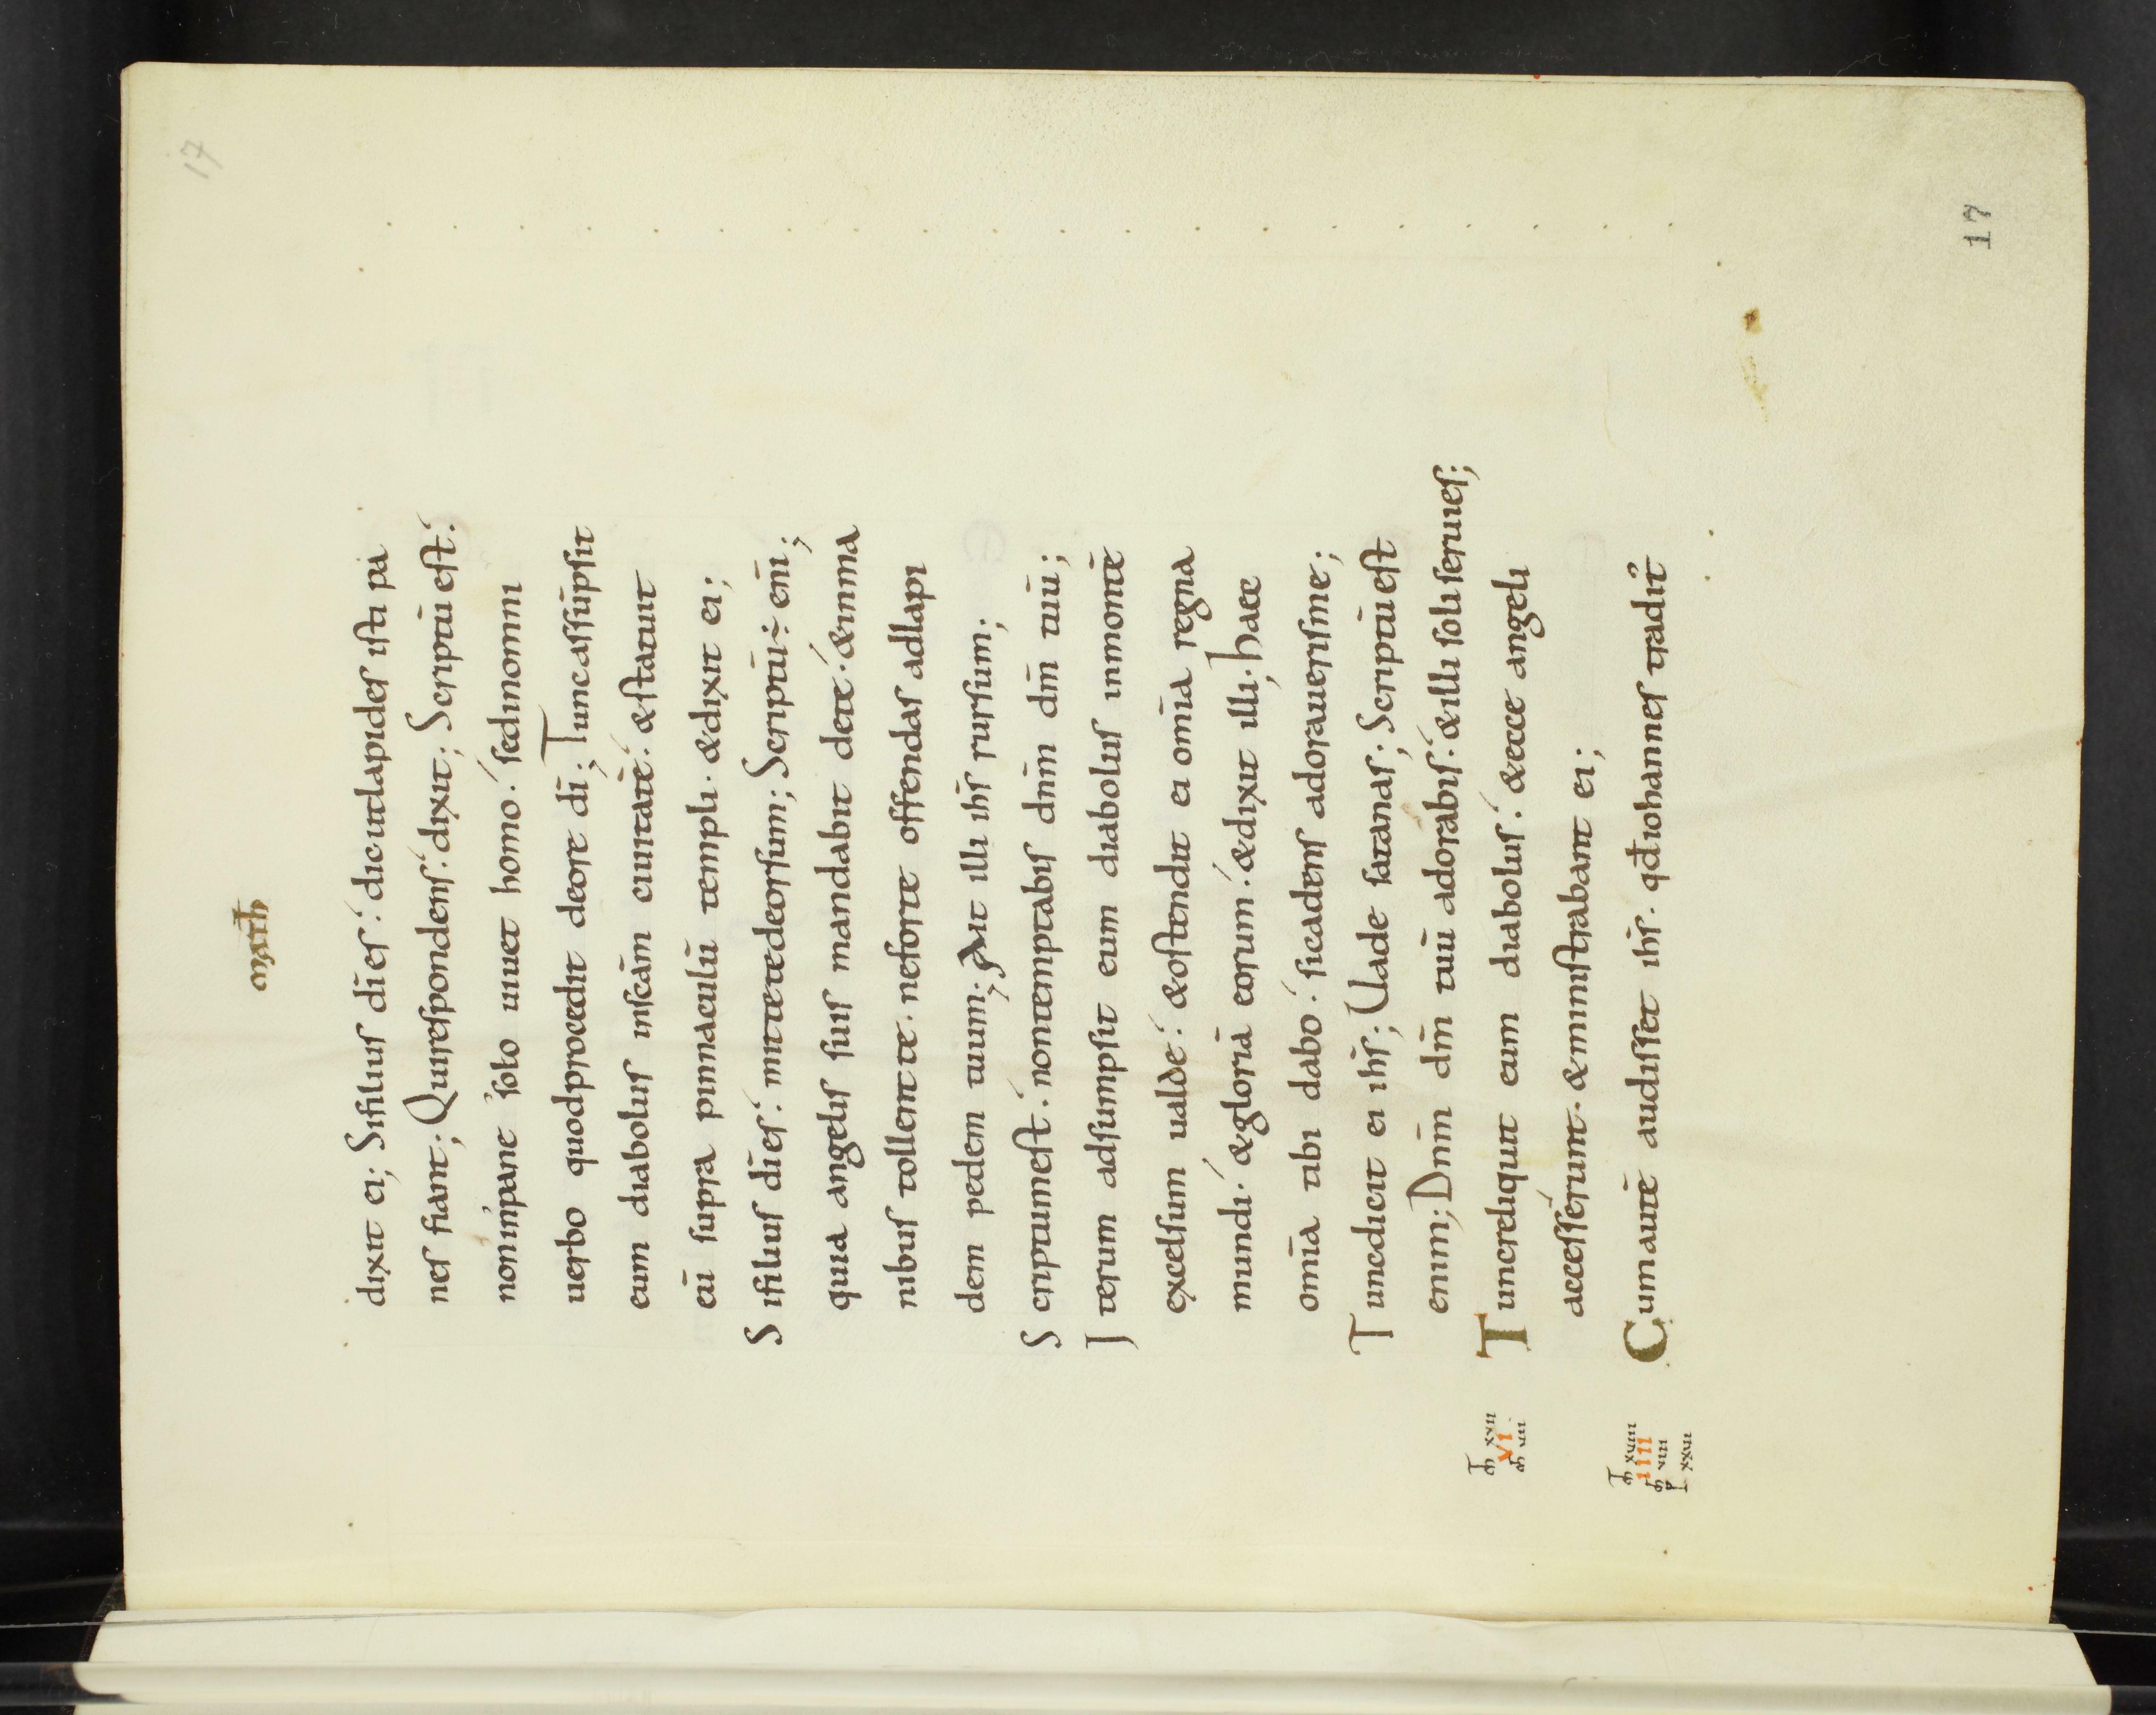 17
math
dixit ei; Sifilius dı̄ eſ:́ dicutlapideſ iſti pa
neſ fiant; Quireſpondenſ:́ dixit; Scriptū eſt:́
noninpane ſolo uiuet homo:́ ſedinomni
uerbo quodprocedit deore dı̄; Tuncaſſūpſit
eum diaboluſ inſcām ciuitatē:́ &ſtatuit
eū ſupra pinnaculū templi. &dixit ei;
Sifiliuſ dı̄ eſ:́ mittetedeorſum; Scriptū÷ enı̄;
quia angeliſ ſuiſ mandabit dete:́ &inma
nibuſ tollent te. neforte offendaſ adlapi
dem pedem tuum; Ait illi ihſ̄ rurſum;
Scriptumeſt:́ nontemptabiſ dnm̄ dm̄ tuū;
Iterum adſumpſit eum diaboluſ inmontē
excelſum ualde:́ &oſtendit ei om̄ia regna
mundi:́ &gloriā eorum:́ &dixit illi; haec
om̄ia tibi dabo:́ ſicadenſ adorauerıſme;
Tuncdicit ei ihſ̄; Uade ſatanaſ; Scriptū eſt
enim; Dnm̄ dm̄ tuū adorabiſ:́ &illi ſoli ſeruieſ;
Tuncreliquit eum diaboluſ:́ &ecce angeli
acceſſerunt. &miniſtrabant ei;
Cumautē audiſſet ihſ̄. qđiohanneſ tradit᾽
xvii
VI
viii
xviii
IIII
viii
xxvii
17